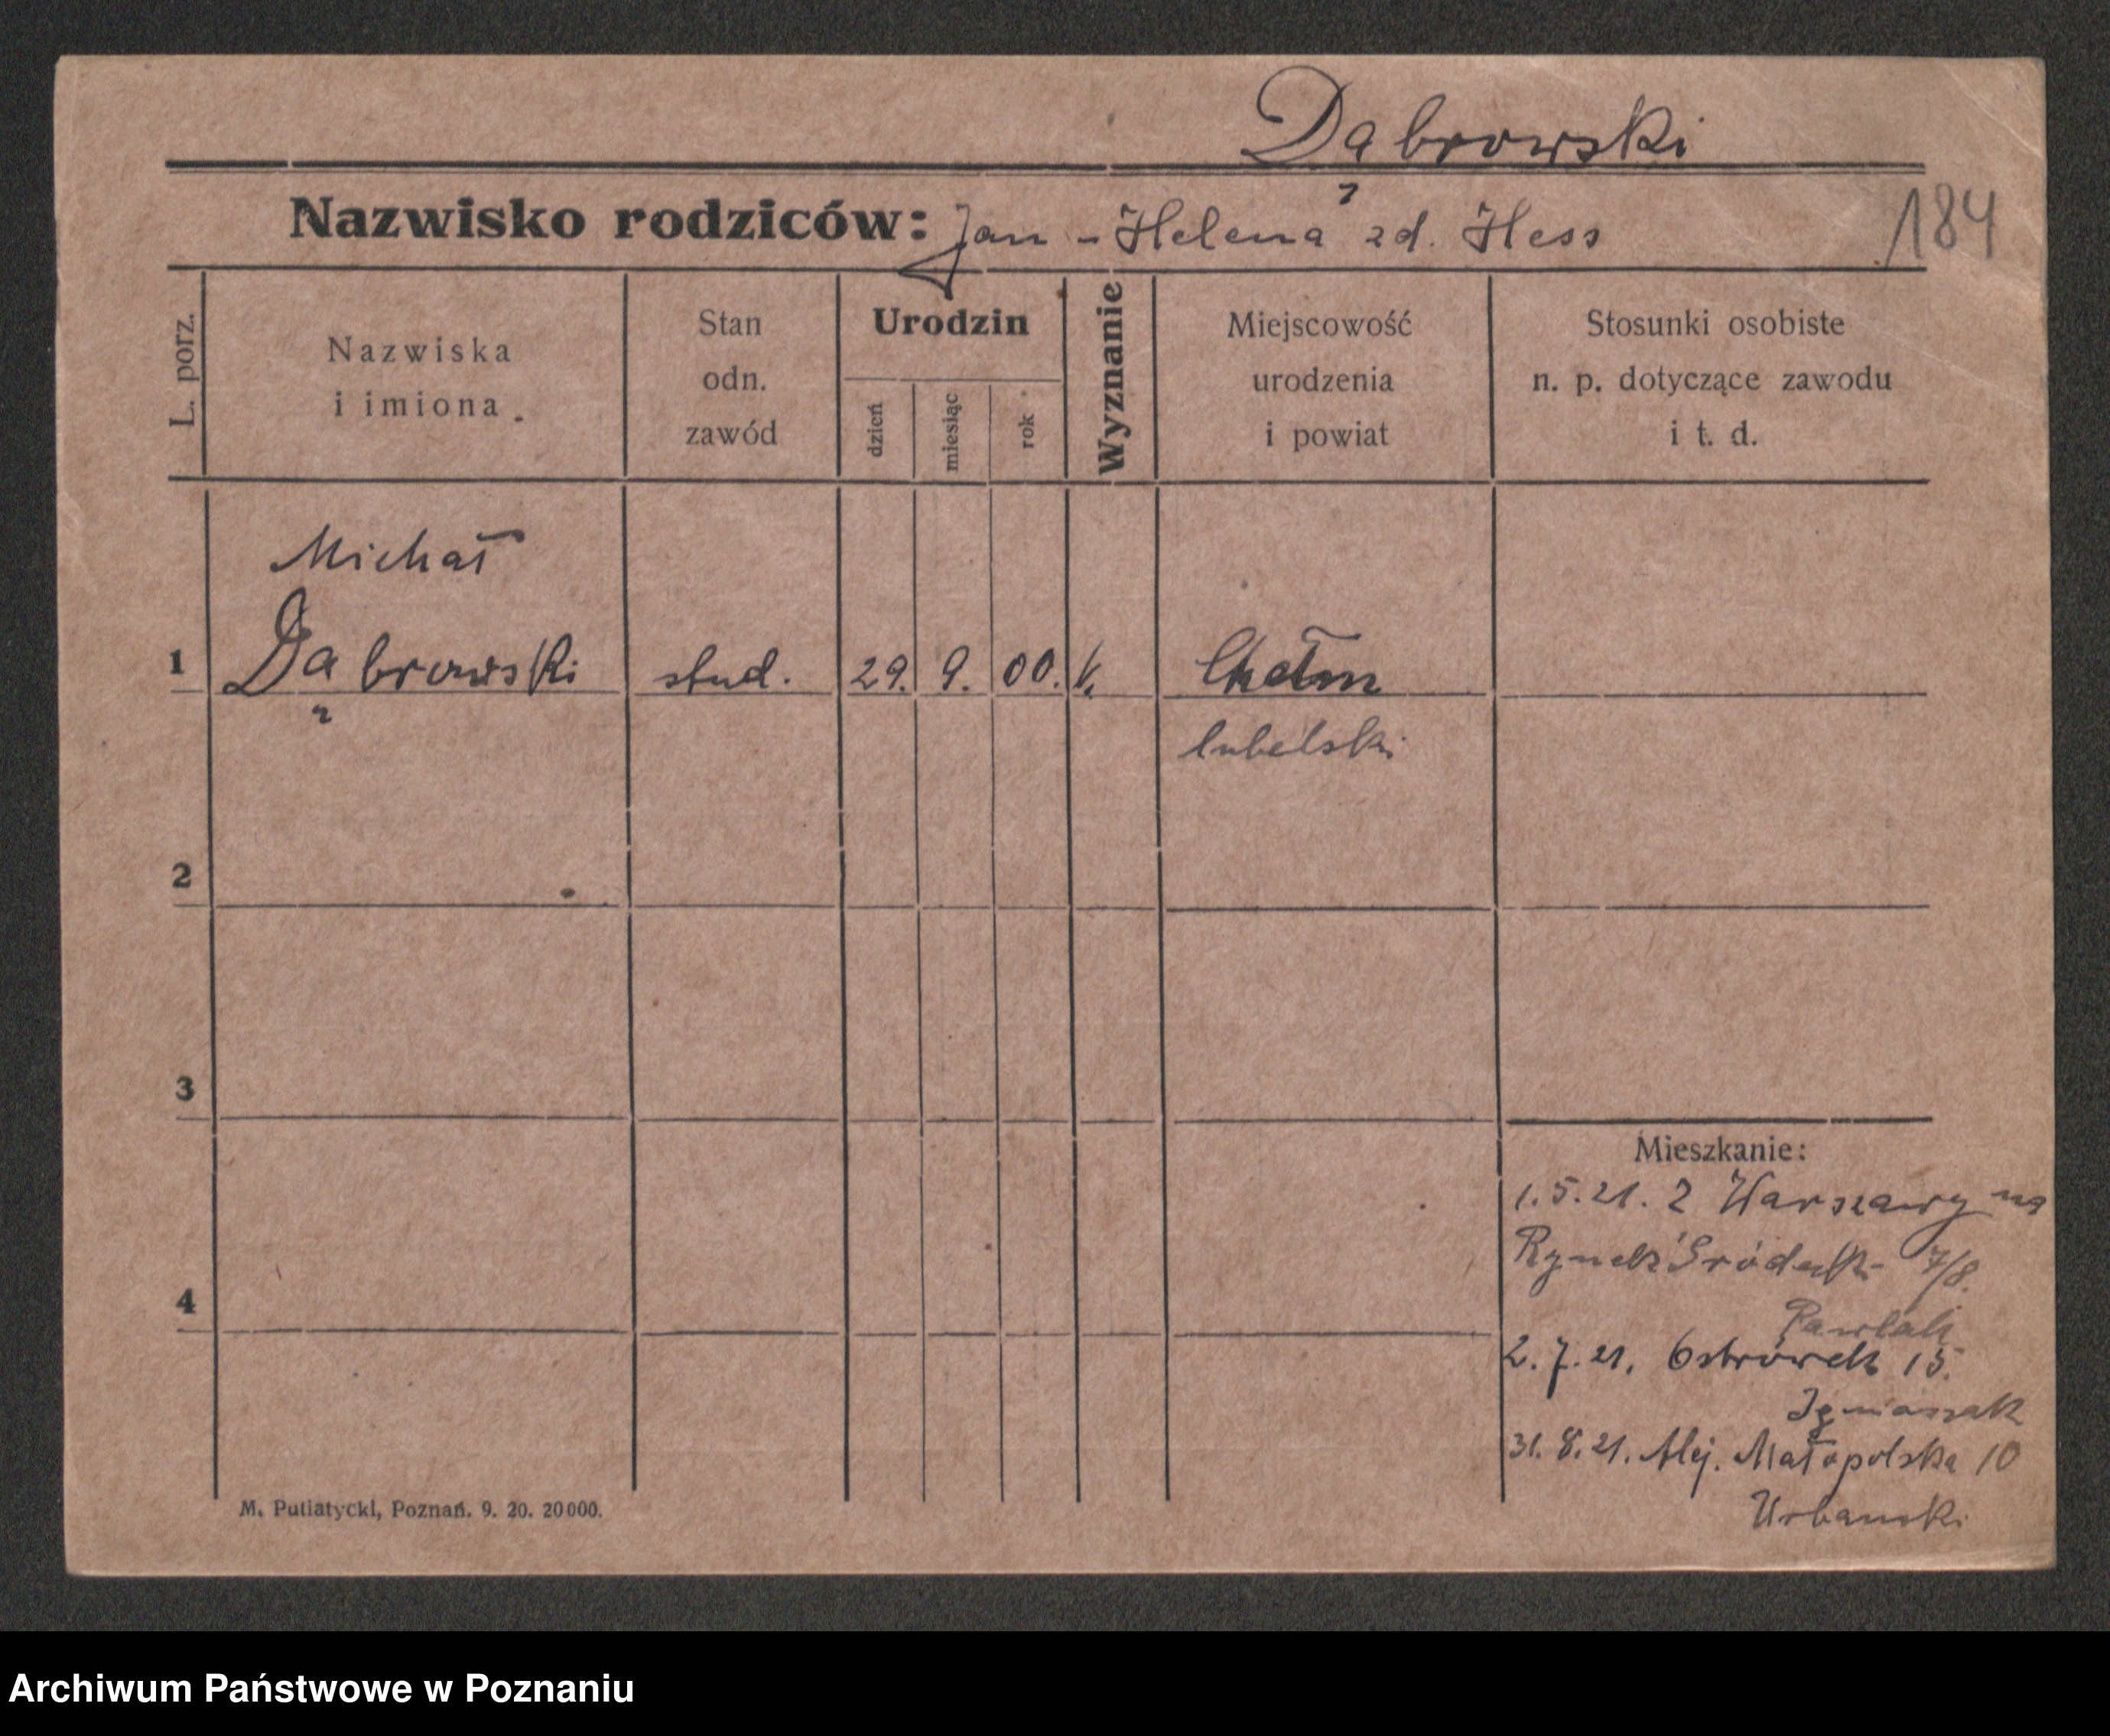 Dąbrowski
Nazwisko rodziców: Jan - Helena zd. Hess
184
L. porz.
Nazwiska
i imiona
Stan
odn.
zawód
Urodzin
dzień
miesiąc
rok
Wyznanie
Miejscowość
urodzenia
i powiat
Stosunki osobiste
n. p. dotyczące zawodu
i t. d.
Michał
1 Dąbrowski stud. 29. 9. 00. k. Chełm
lubelski
2
3
Mieszkanie:
1.5.21. z Warszawy na
Rynek Śródecki 7/8.
4
Pawlak
2.7.21. Ostrówek 15.
Ignaszak
31.8.21. Alej. Małopolska 10
Urbański
M. Putiatycki, Poznań. 9. 20. 20000.
Archiwum Państwowe w Poznaniu